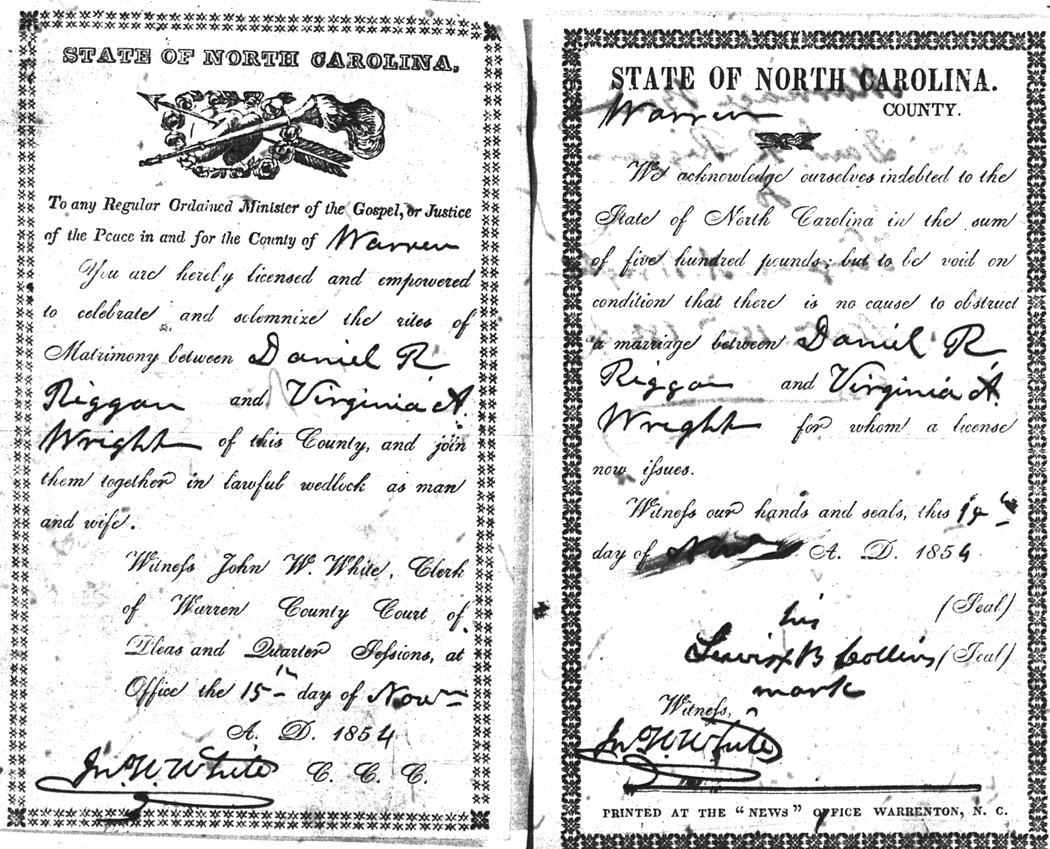 STATE OF NORTH CAROLINA.
To any Regular Ordained Minister of the Gospel, or Justice
of the Peace in and for the County of Warren
You are hereby licensed and empowered
to celebrate and solemnize the rites of
Matrimony between Daniel R
Riggan and Virginia A.
Wright of this County, and join
them together in lawful wedlock as man
and wife.
Witness John W. White, Clerk
of Warren County Court of
Pleas and Quarter Sessions, at
Office the 15th day of Novm
A. D. 1854
Jn. W. White C. C. C.
STATE OF NORTH CAROLINA.
Warren COUNTY.
We acknowledge ourselves indebted to the
State of North Carolina in the sum
of five hundred pounds; but to be void on
condition that there is no cause to obstruct
a marriage between Daniel R.
Riggan and Virginia A.
Wright for whom a license
now issues.
Witness our hands and seals, this
day of A. D. 1854
his (Seal)
Lewis X B Collins (Seal)
mark
Witness,
Jn. W. White
PRINTED AT THE "NEWS" OFFICE WARRENTON, N. C.